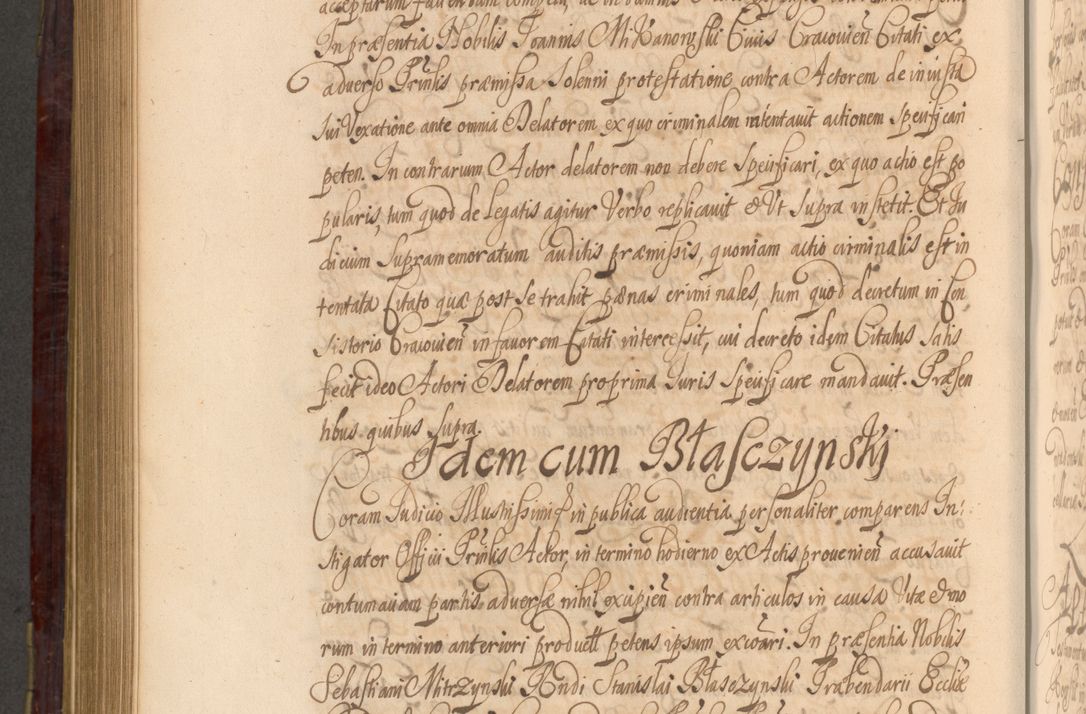 In præsentia Nobilis Joannis Mikanowski Civis Cracovien Citati ex
adverso Prinlis præmissa solenni protestatione contra Actorem de iniusta
Juri Vexatione ante omnia Delatorem ex quo criminalem intentavit actionem specificari
peten. In contrarum Actor delatorem non debere specificari, ex quo actio est po
pularis, tum quod de legatis agitur Verbo replicavit & Ut supra institit. Et Ju
dicium supramemoratum auditis præmissis, quoniam actio criminalis est in
tentata Citato quæ post se trahit pænas criminales, tum quod decretum in Con
sistorio Cracovien in favorem Citati intercessit, cui decreto idem Citatus satis
fecit ideo Actori Delatorem pro prima Juris specificare mandavit. Præsen
tibus quibus supra.
Idem cum Błasczynski
Coram Judicio Illustrissimi in publica audientia personaliter comparens In-
stigator Officii Prinlis Actor, in termino hodierno ex Actis provenien accusavit
contumaciam partis adversæ nihil excipien contra articulos in causa Vitæ & mo
rum in termino anteriori product petens ipsum excōari. In præsentia Nobilis
Sebastiani Mitrzynski Rndi Stanislai Błasczynski Præbendarii Eccliæ